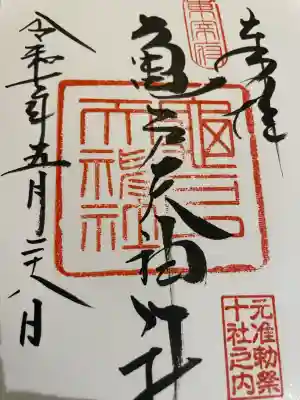 奉拝
亀戸天神社
令和元年五月二十八日
亀戸天神社
元准勅祭
十社之内